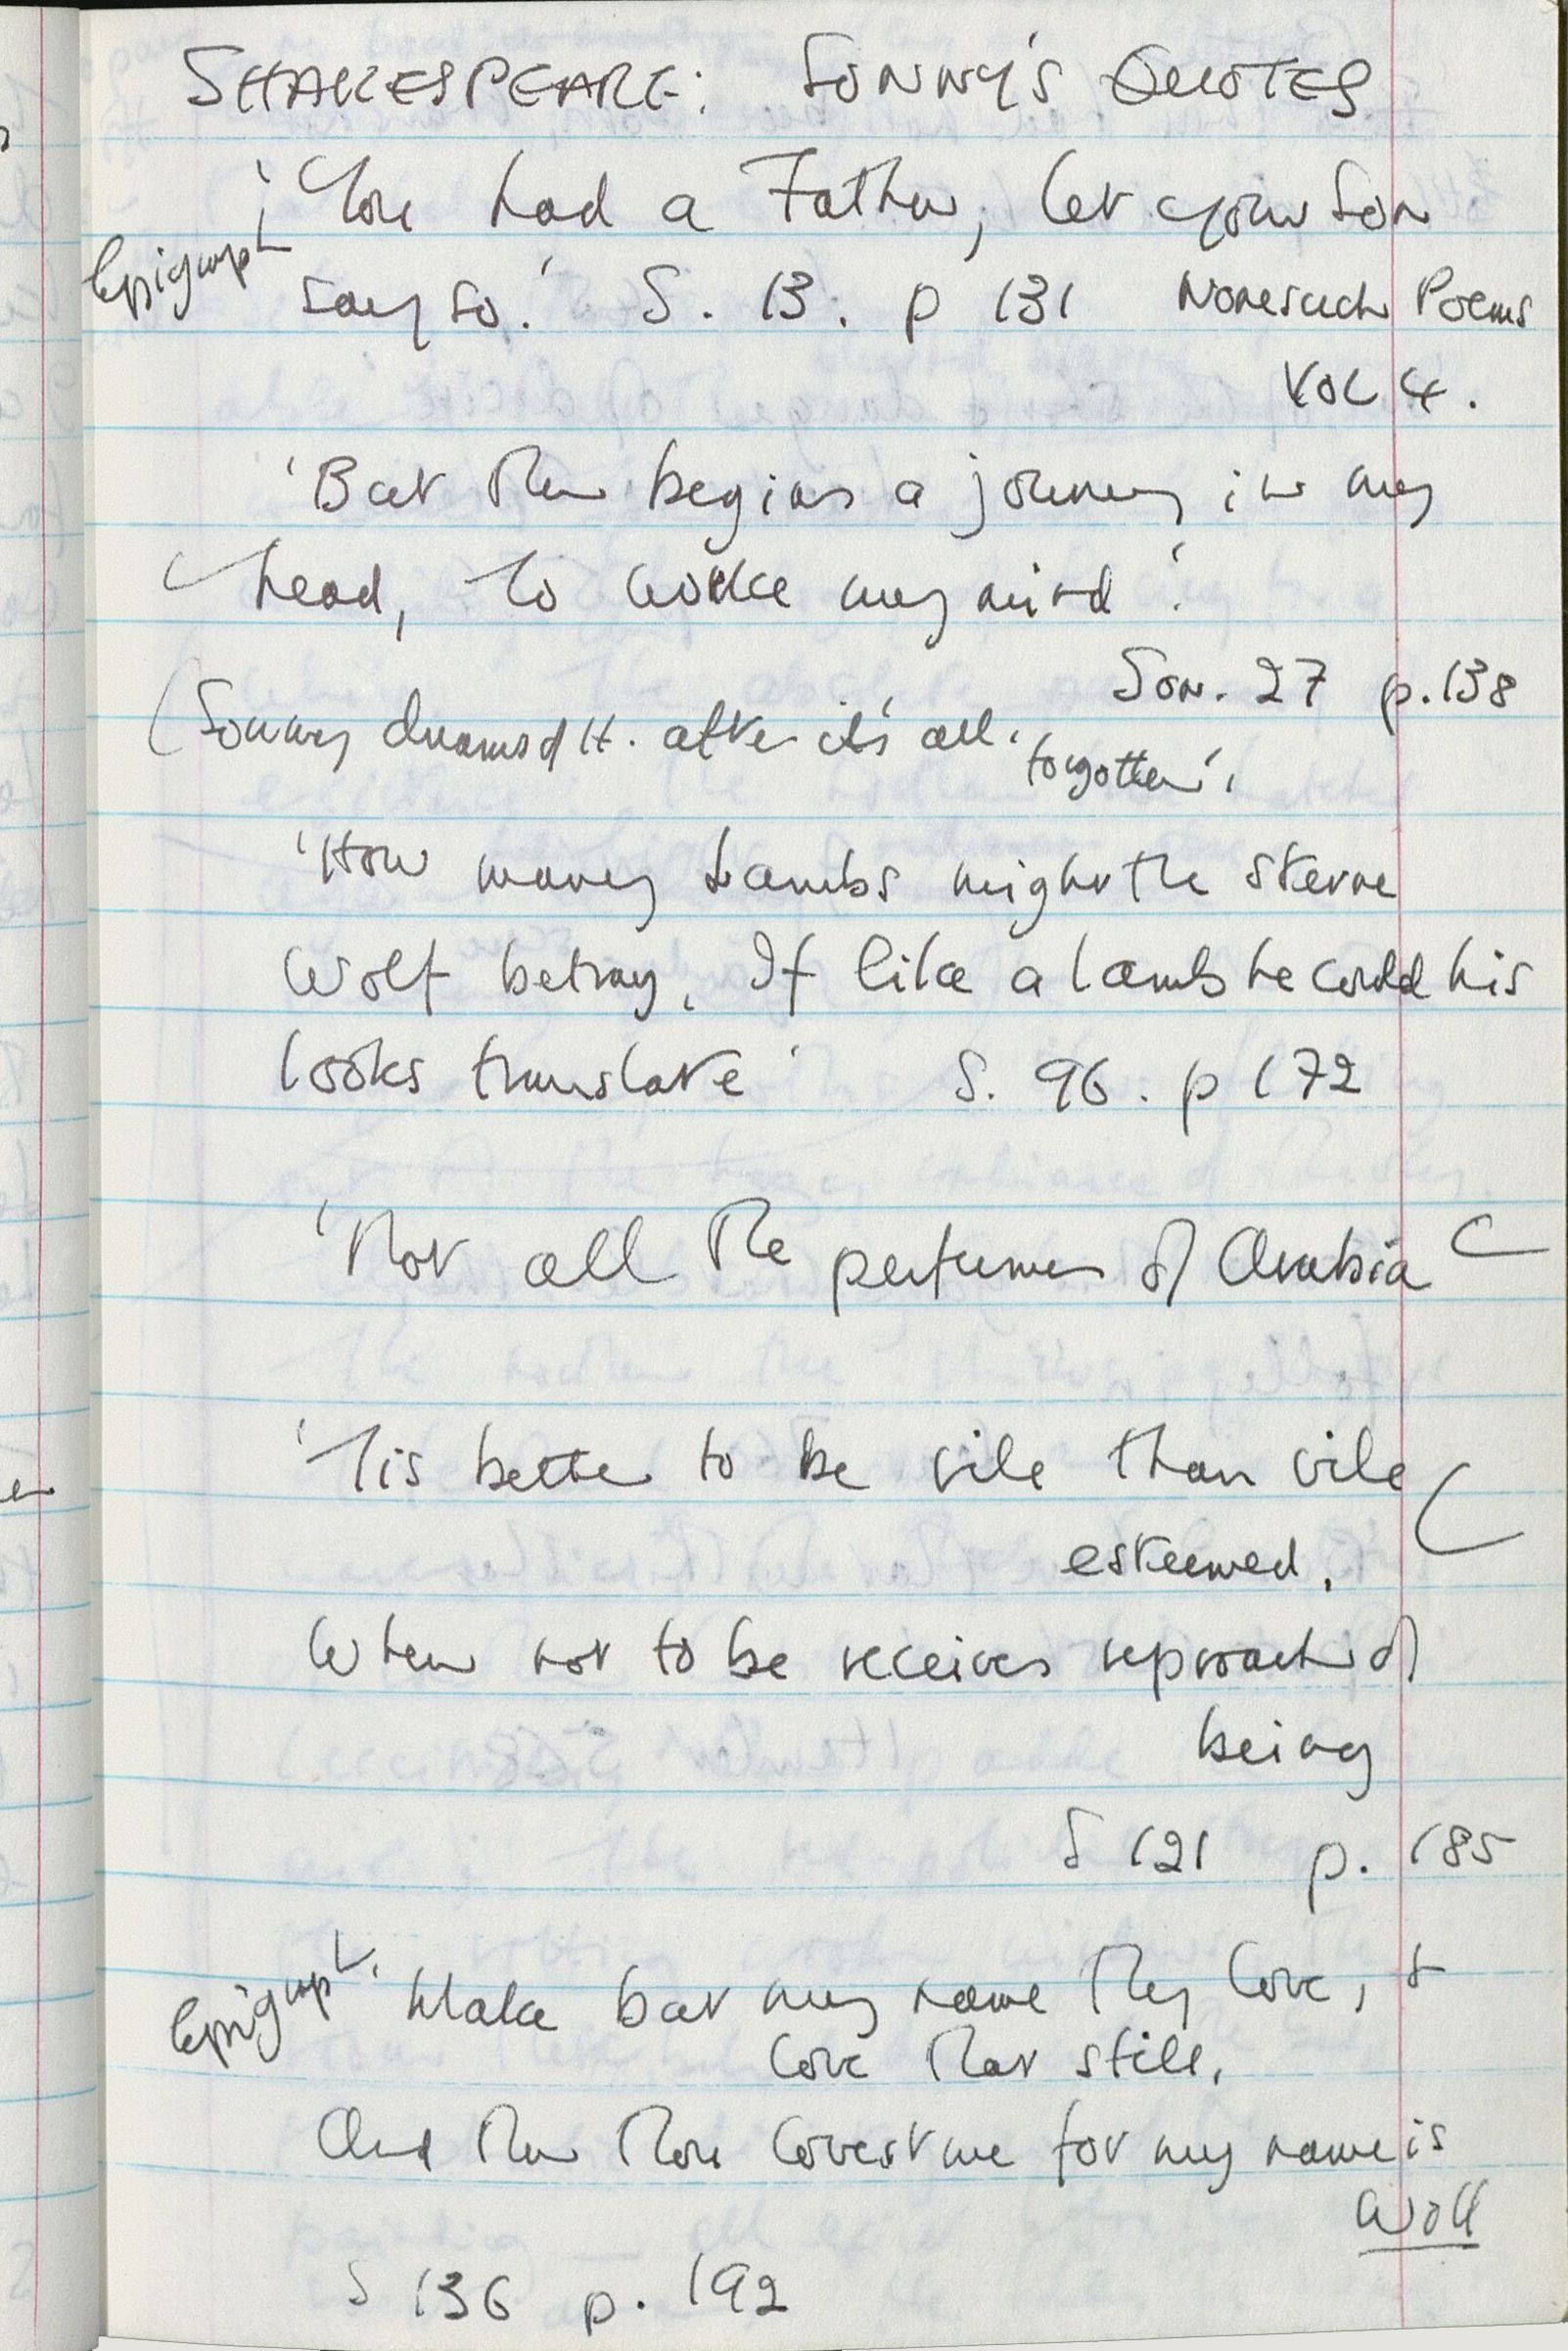 SHAKESPEARE: SONNY'S QUOTES
'You had a Father, let your Son
Epigraph
say so.' S. 13. p 131 Nonesuch Poems
VOL 4.
'But then begins a journey in my
head, to worke my mind'.
Son. 27 p.138
(Sonny dreams of H. after it's all
'forgotten'.
'How many Lambs might the sterne
Wolf betray, If like a lamb he could his
looks translate' S. 96. p 172
'Not all the perfumes of Arabia
'Tis better to be vile than vile
esteemed,
When not to be receives reproach of
being
S 121 p. 185
Epigraph. Make but my name thy love, &
love that still,
And then thou lovest me for my name is
Will
S 136 p. 192